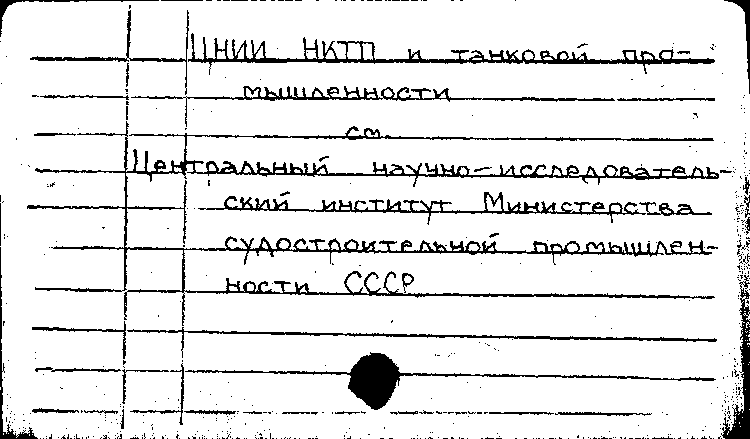 ЦНИИ НКТП и танковой про-
мышленности
см.
Центральный научно-исследователь-
ский институт Министерства
судостроительной промышлен-
ности СССР